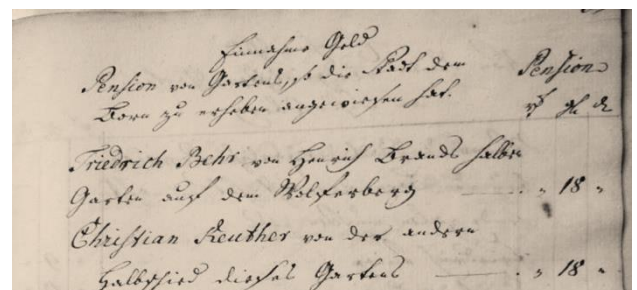 Einnahme Geld
Pension von Gartens, so die Stadt dem Pension
Born zu erheben angewiesen hat. rh gl d
Friedrich Behr von Henrich Brands halben
Garten auf dem Wolferberg " 18 "
Christian Reuther von der andern
Halbschied dieses Gartens " 18 "